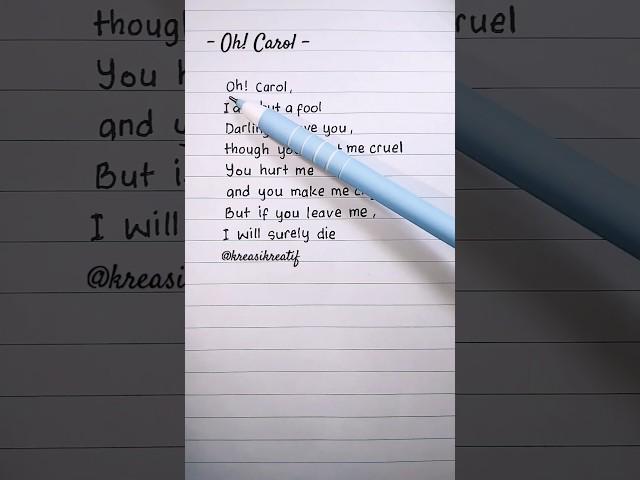 - Oh! Carol -
Oh! Carol,
I but a fool
Darling you,
though me cruel
You hurt me
and you make me
But if you leave me,
I will surely die
@kreasikreatif